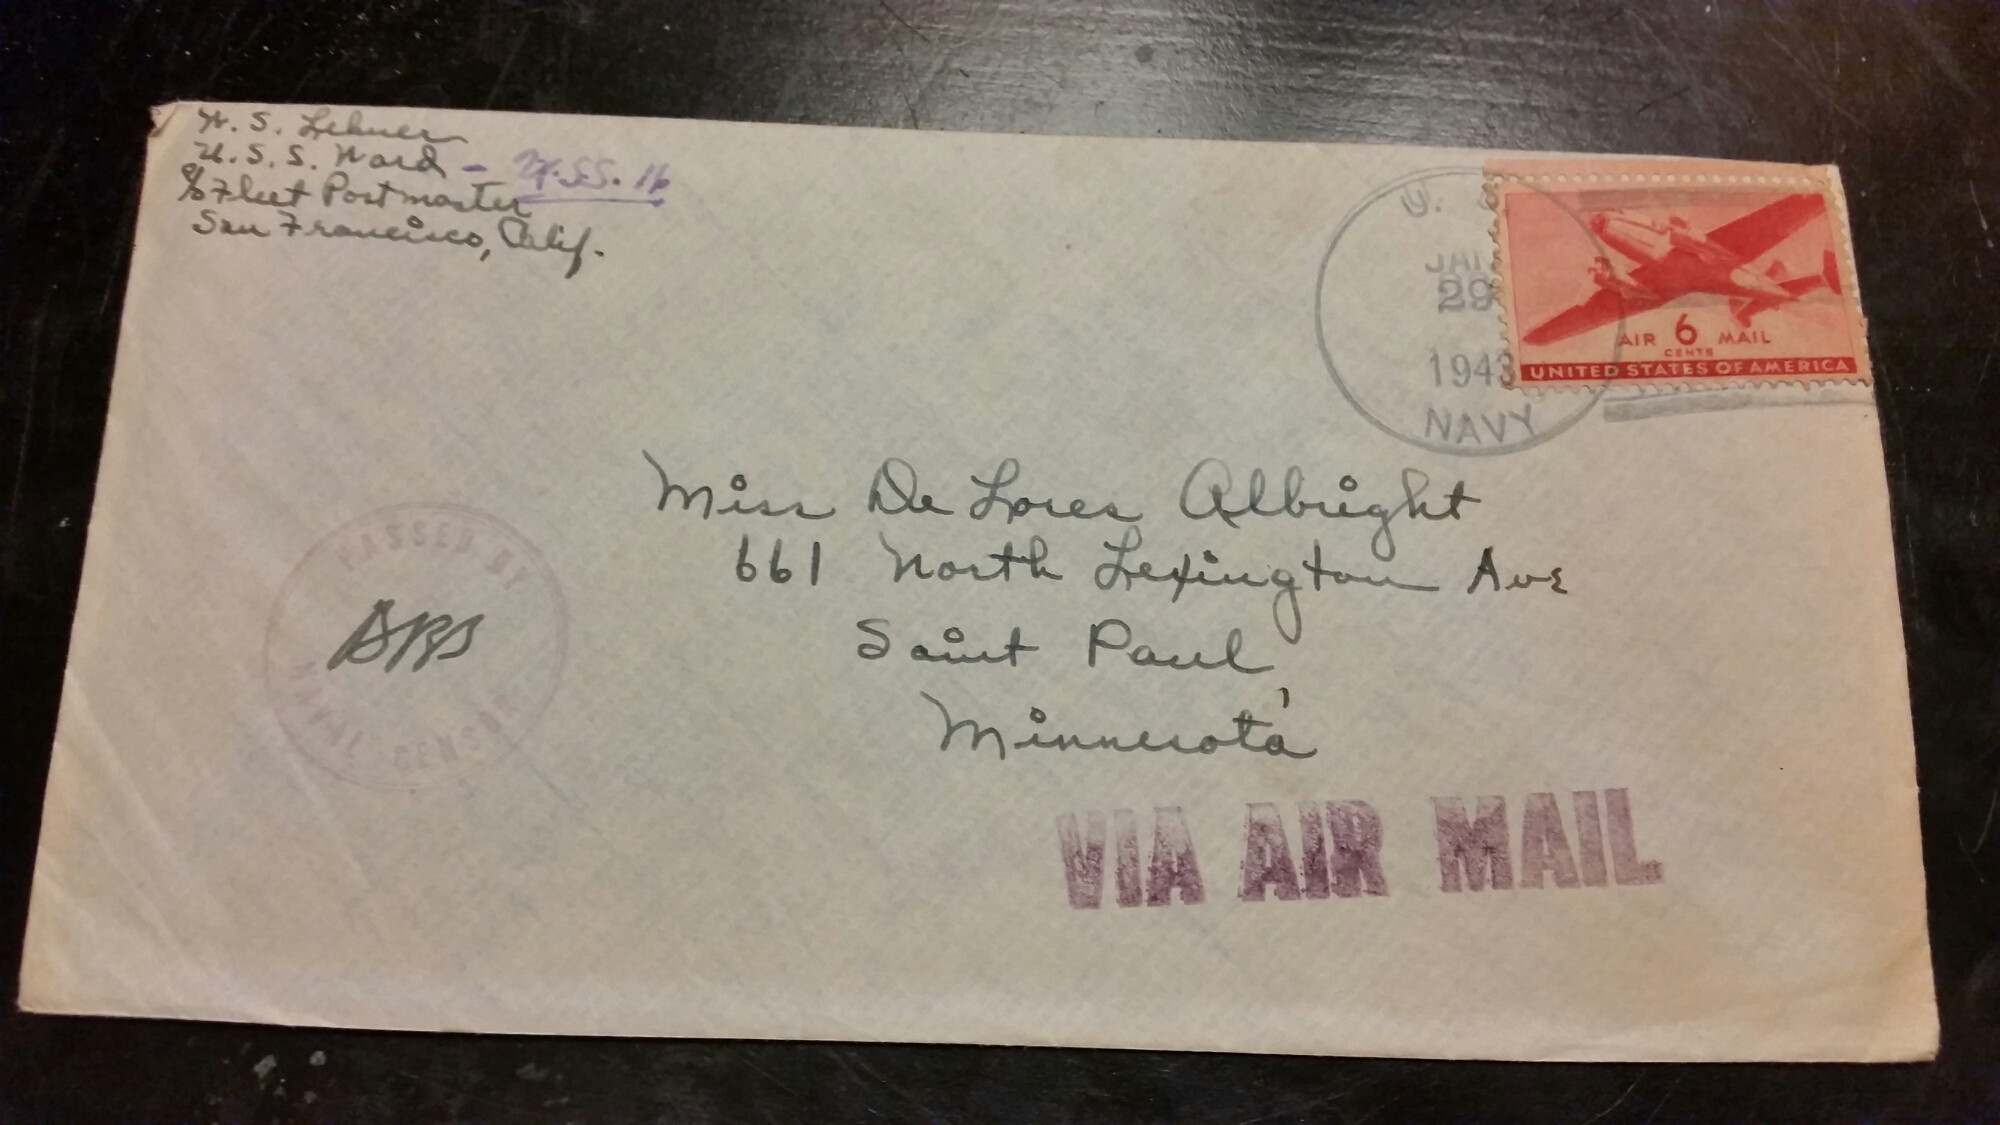 W. S. Lehner
U.S.S. Ward -
c/o Fleet Postmaster
San Francisco, Calif.
U. S.
JAN
29
1943
NAVY
AIR 6 MAIL
CENTS
UNITED STATES OF AMERICA
Miss De Lores Albright
661 North Lexington Ave
Saint Paul,
Minnesota
PASSED BY
NAVAL CENSOR
VIA AIR MAIL